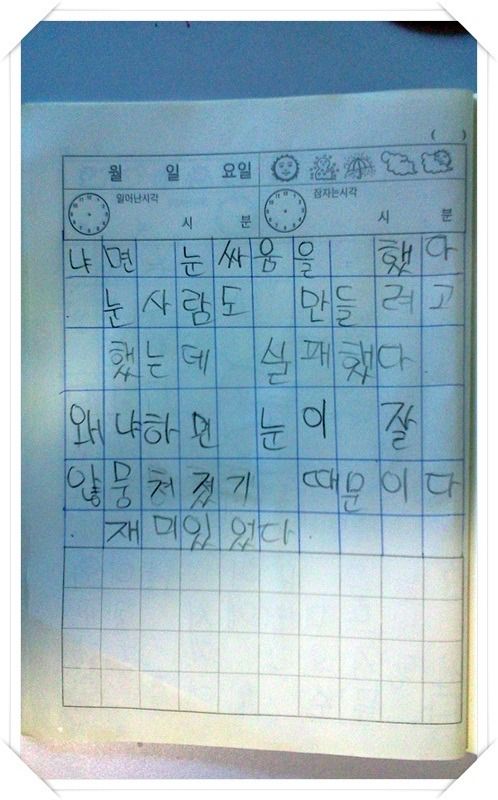 ( )
월 일 요일
일어난시각 잠자는시각
시 분 시 분
냐면 눈싸움을 했다
눈사람도 만들려고
했는데 실패했다
왜냐하면 눈이 잘
않뭉쳐졌기 때문이다
. 재미있었다.